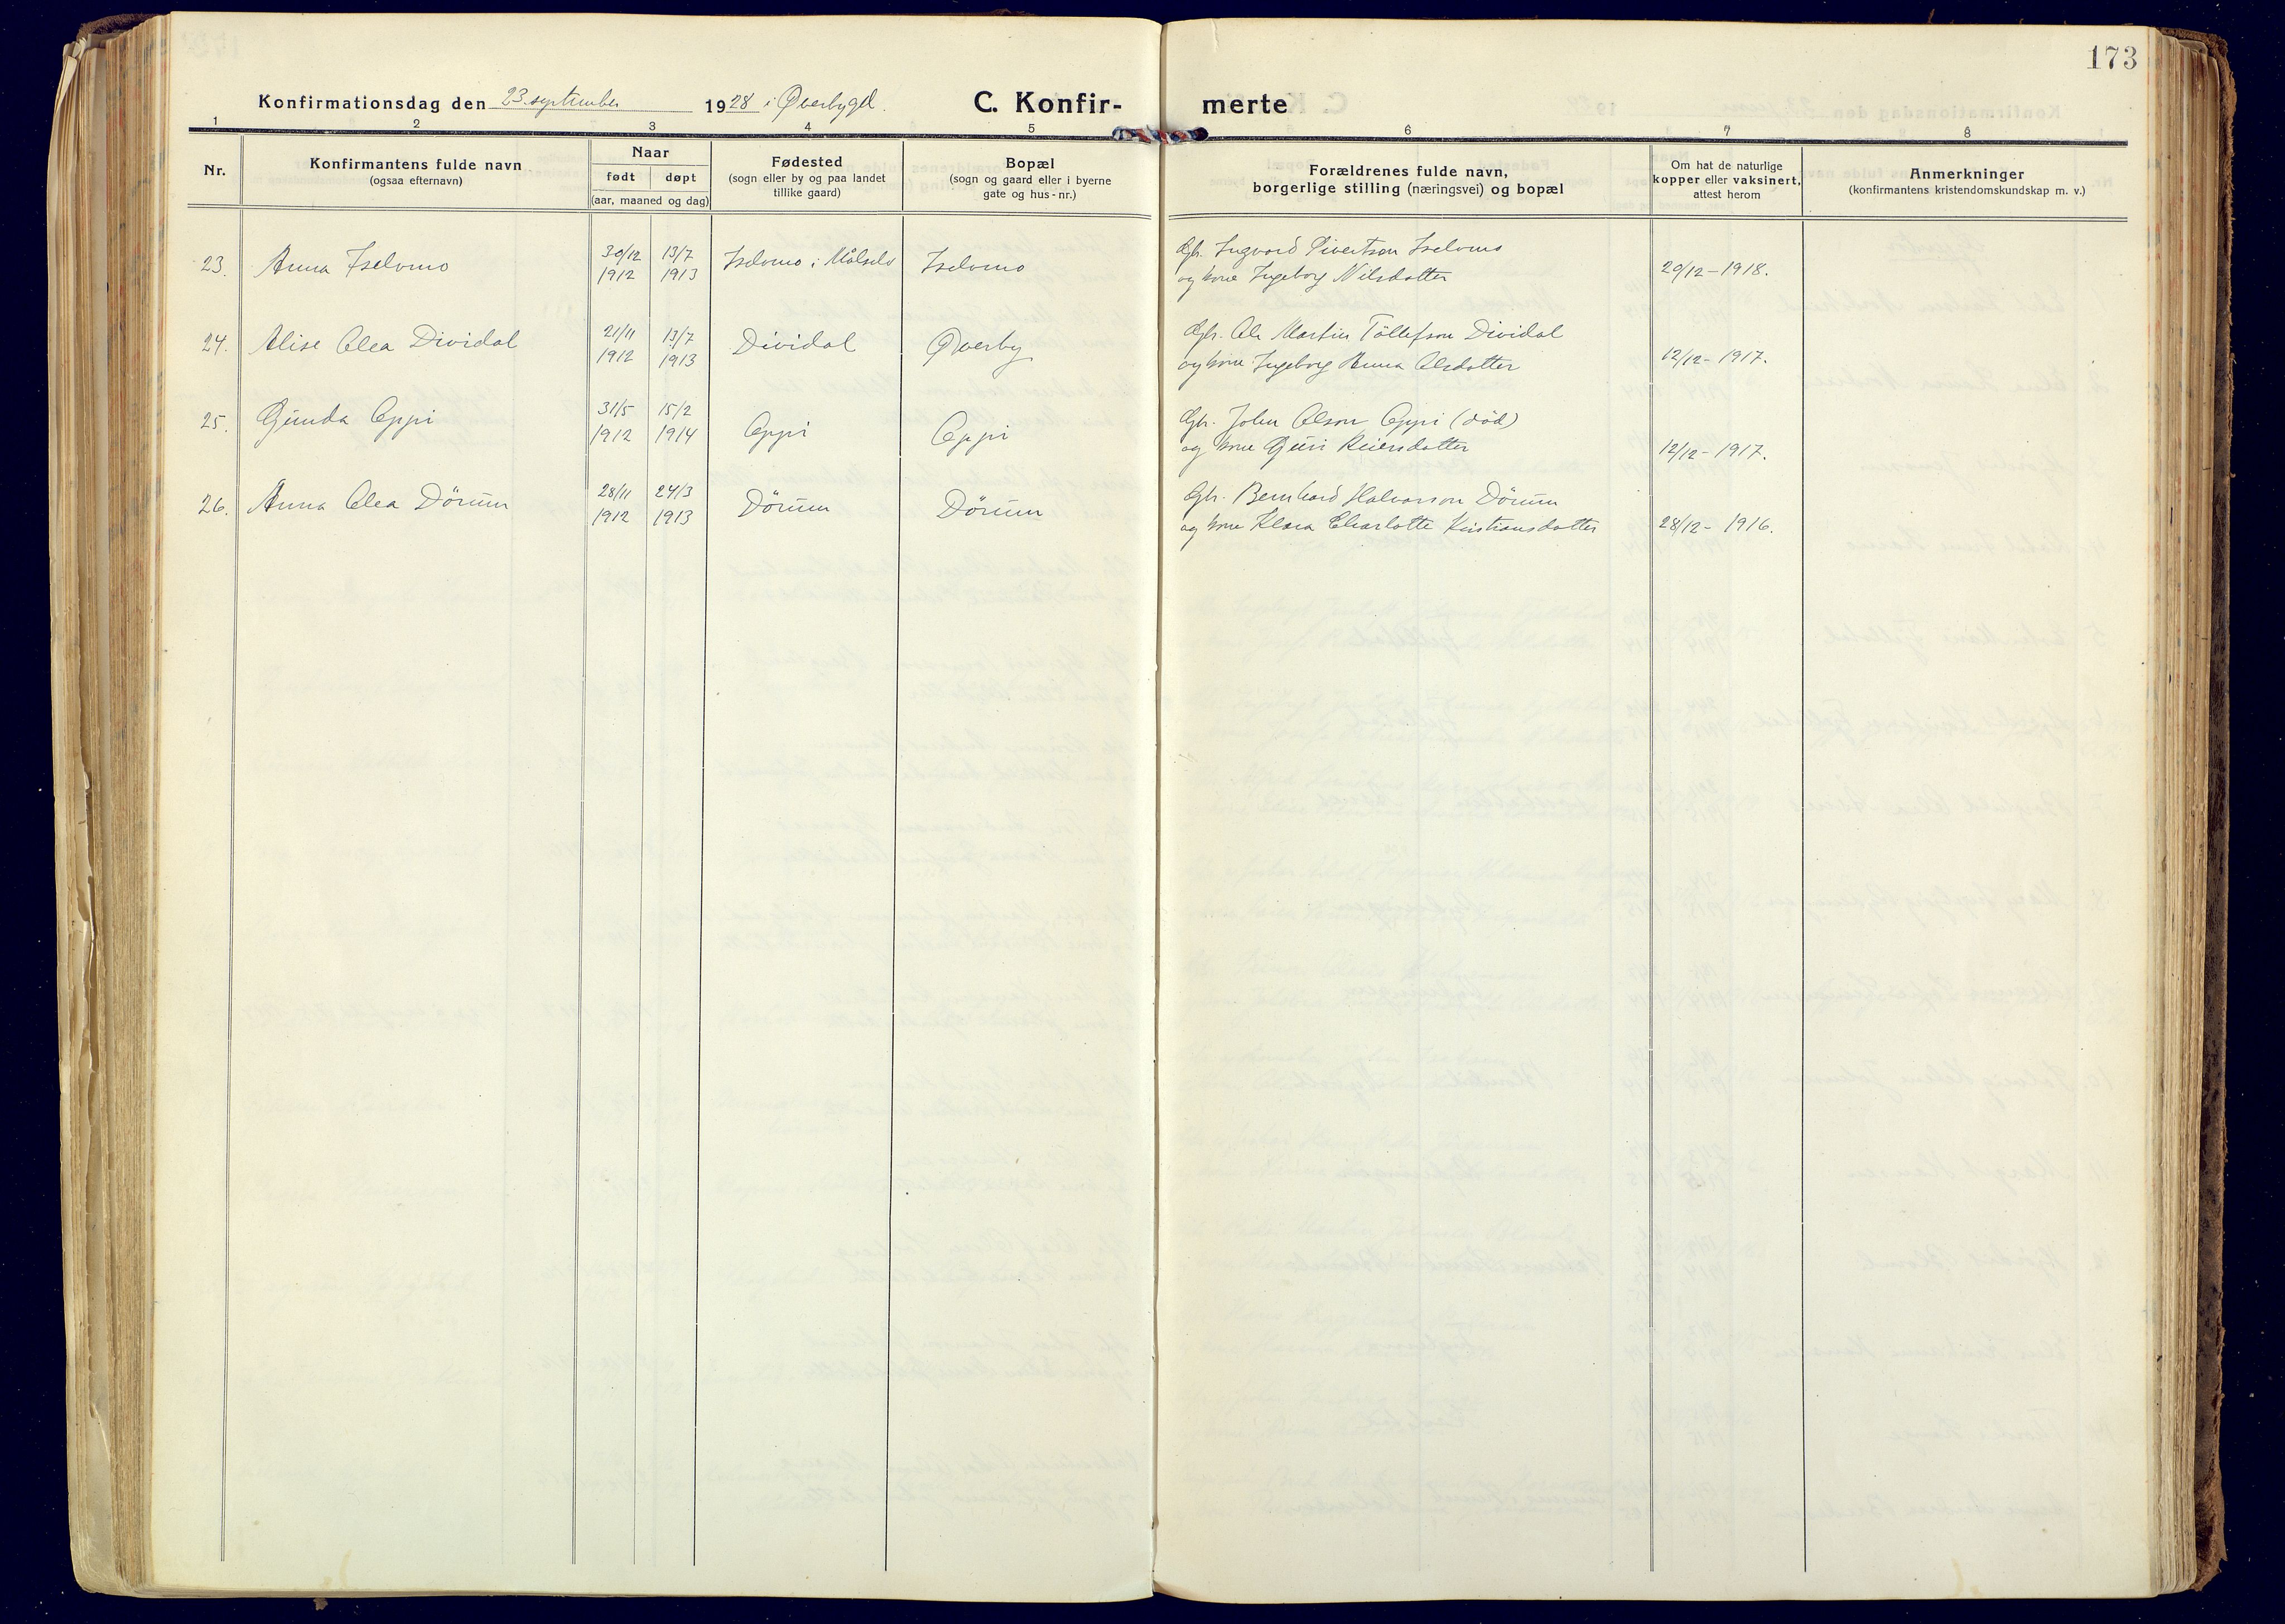 173
Konfirmationsdag den 23. september 1928 i Øverbygd. C. Konfir- merte
1 2 3 4 5 6 7 8
Nr.
Konfirmantens fulde navn
(ogsaa efternavn)
Naar
født døpt
(aar, maaned og dag)
Fødested
(sogn eller by og paa landet
tillike gaard)
Bopæl
(sogn og gaard eller i byerne
gate og hus-nr.)
Forældrenes fulde navn,
borgerlige stilling (næringsvei) og bopæl
Om hat de naturlige
kopper eller vaksinert,
attest herom
Anmerkninger
(konfirmantens kristendomskundskap m. v.)
23. Anna Iselvmo 30/12 1912 13/7 1913 Iselvmo i Målselv Iselvmo
Gbr. Ingvard Sivertson Iselvmo
og kone Ingeborg Nilsdotter 20/12-1918.
24. Alise Olea Dividal 21/11 1912 13/7 1913 Dividal Øverby
Gbr. Ole Martin Tollefson Dividal
og kone Ingeborg Anna Olsdotter 12/12-1917.
25. Gunda Oppi 31/5 1912 15/2 1914 Oppi Oppi
Gbr. John Olson Oppi (död)
og kone Guri Reiersdotter 12/12-1917.
26. Anna Olea Dörum 28/11 1912 24/3 1913 Dörum Dörum
Gbr. Bernhard Halvorson Dörum
og kone Klara Charlotte Kristiansdotter 28/12-1916.